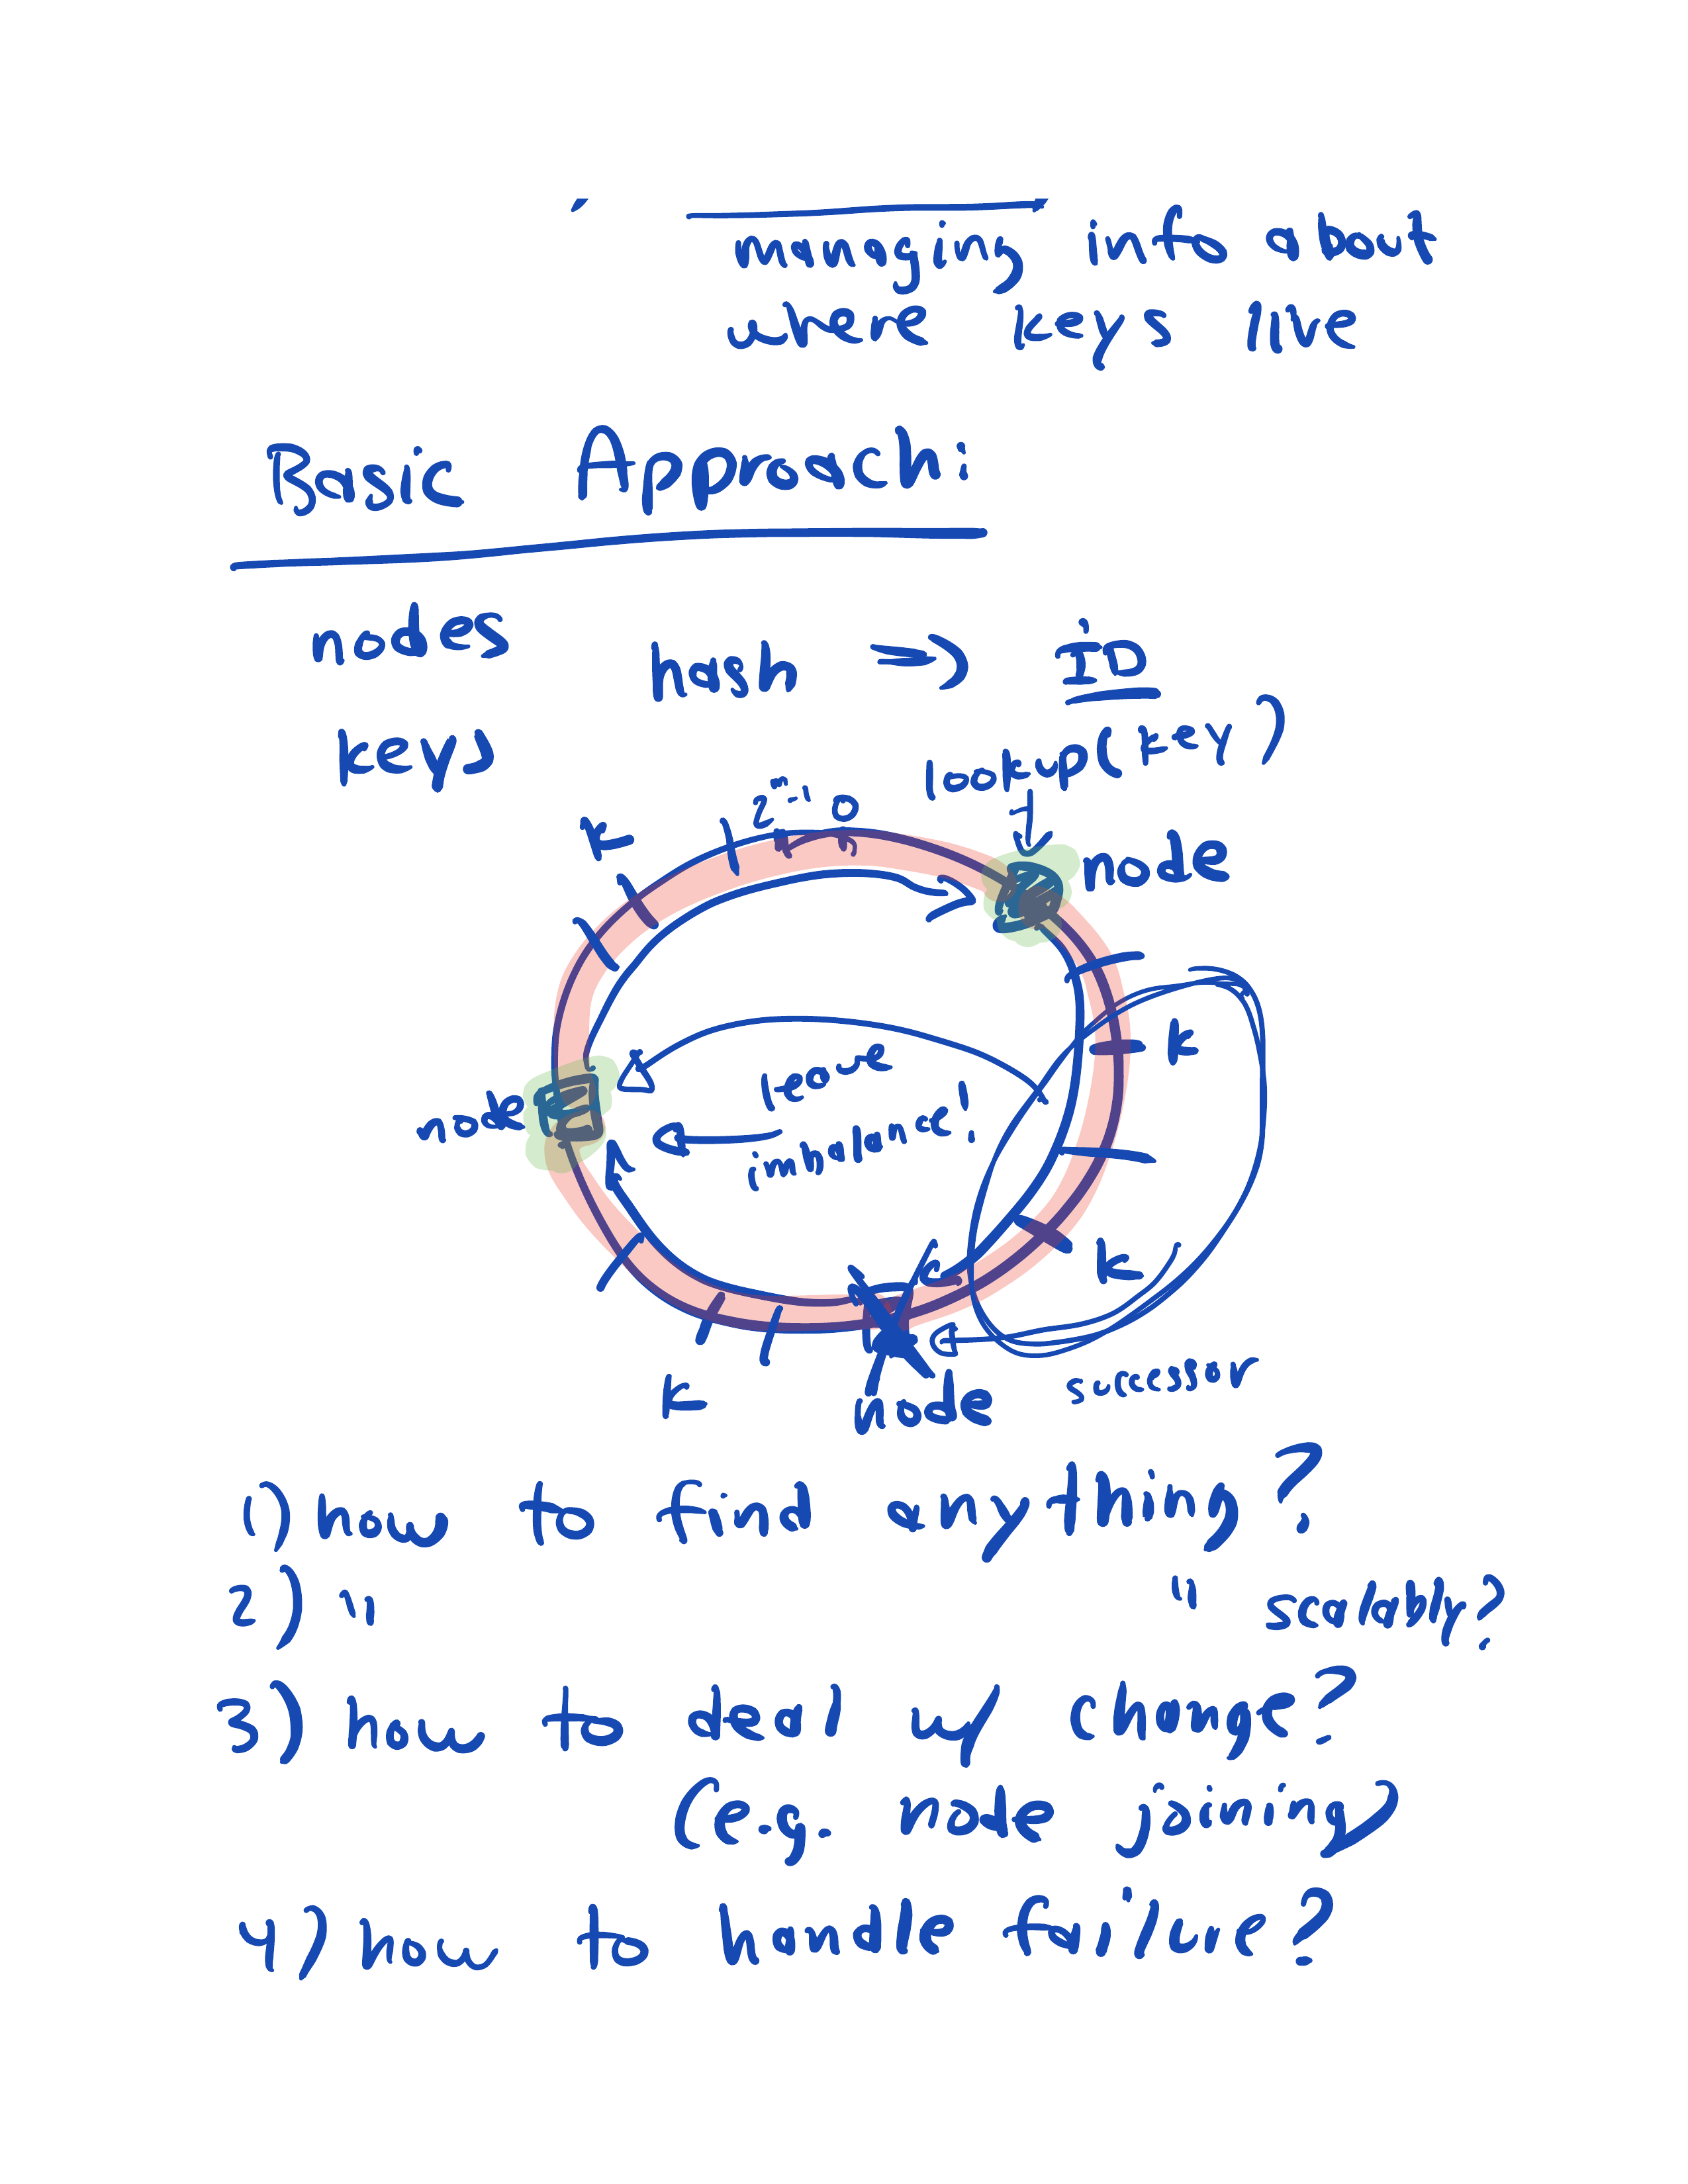 managing info about
where keys live
Basic Approach:
nodes hash → ID
keys
lookup(key)
k 2^m-1 0
node
k
leave
node
imbalance!
k
k
node
successor
1) how to find anything?
2) " " scalably?
3) how to deal w/ change?
(e.g. node joining)
4) how to handle failure?